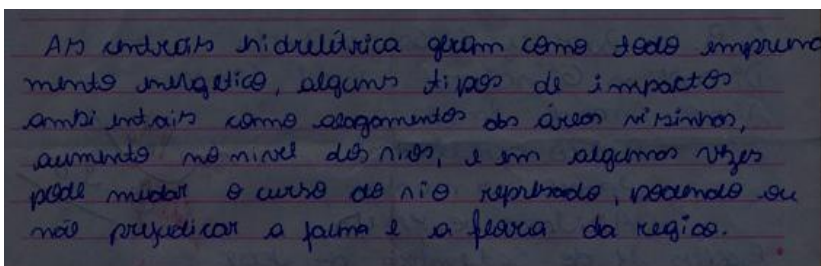 As centrais hidrelétrica geram como todo empreend
mento energetico, alguns tipos de impactos
ambientais como alagamentos das áreas vizinhas,
aumento no nivel dos rios, e em algumas vezes
pode mudar o curso do rio represado, podendo ou
não prejudicar a fauna e a flora da região.